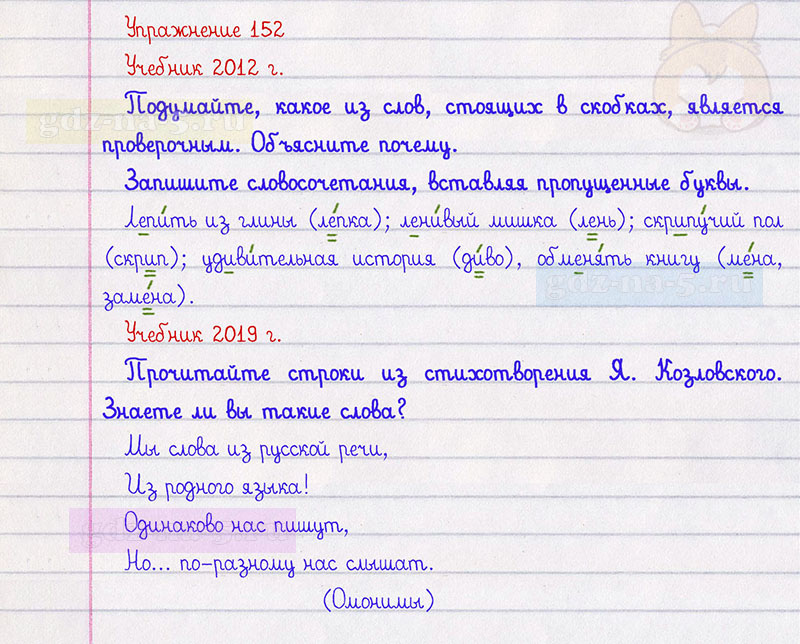 Упражнение 152
Учебник 2012 г.
Подумайте, какое из слов, стоящих в скобках, является
проверочным. Объясните почему.
Запишите словосочетания, вставляя пропущенные буквы.
Лепи́ть из глины (ле́пка); лени́вый мишка (лень); скрипу́чий пол
(скрип); удиви́тельная история (ди́во), обменя́ть книгу (ме́на,
заме́на).
Учебник 2019 г.
Прочитайте строки из стихотворения Я. Козловского.
Знаете ли вы такие слова?
Мы слова из русской речи,
Из родного языка!
Одинаково нас пишут,
Но... по-разному нас слышат.
(Омонимы)
gdz-na-5.ru
gdz-na-5.ru
gdz-na-5.ru